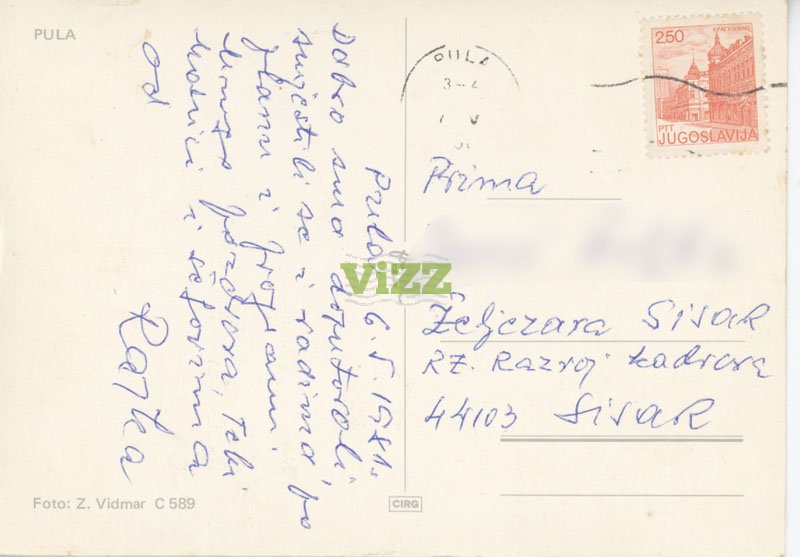 PULA
Pula 6.5.1981.
Dobro smo doputovali,
smjestili se i radimo po
planu i programu.
Mnogo pozdrava, Tebi
i šefovima
od
Rajka
2.50
PTT
JUGOSLAVIJA
PULA
Prima
Željezara Sisak
RZ. Razvoj kadrova
44103 Sisak
ViZZ
Foto: Z. Vidmar C 589
CIRG